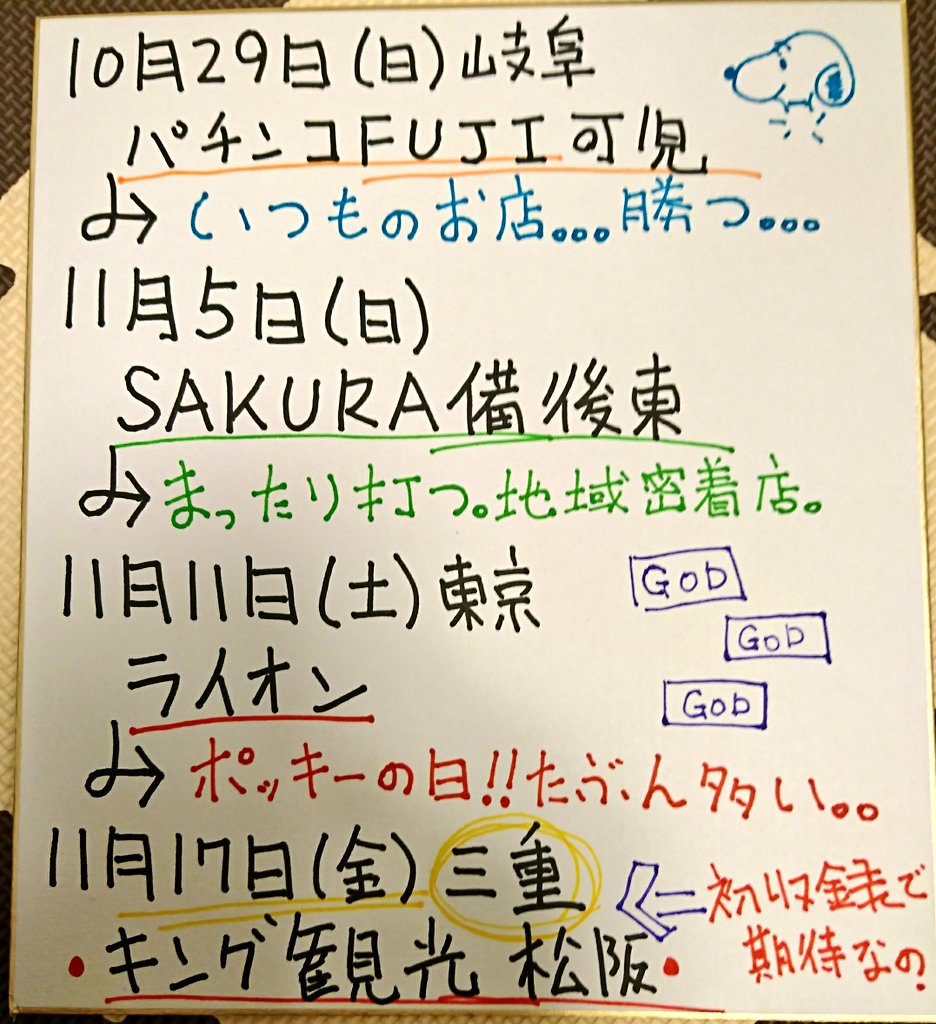 10月29日(日)岐阜
パチンコFUJI可児
いつものお店...勝つ...
11月5日(日)
SAKURA備後東
まったり打つ。地域密着店。
11月11日(土)東京
GOD
GOD
GOD
ライオン
ポッキーの日!!たぶん多い。。
11月17日(金)三重
初収録で
期待なの.
・キング観光 松阪・